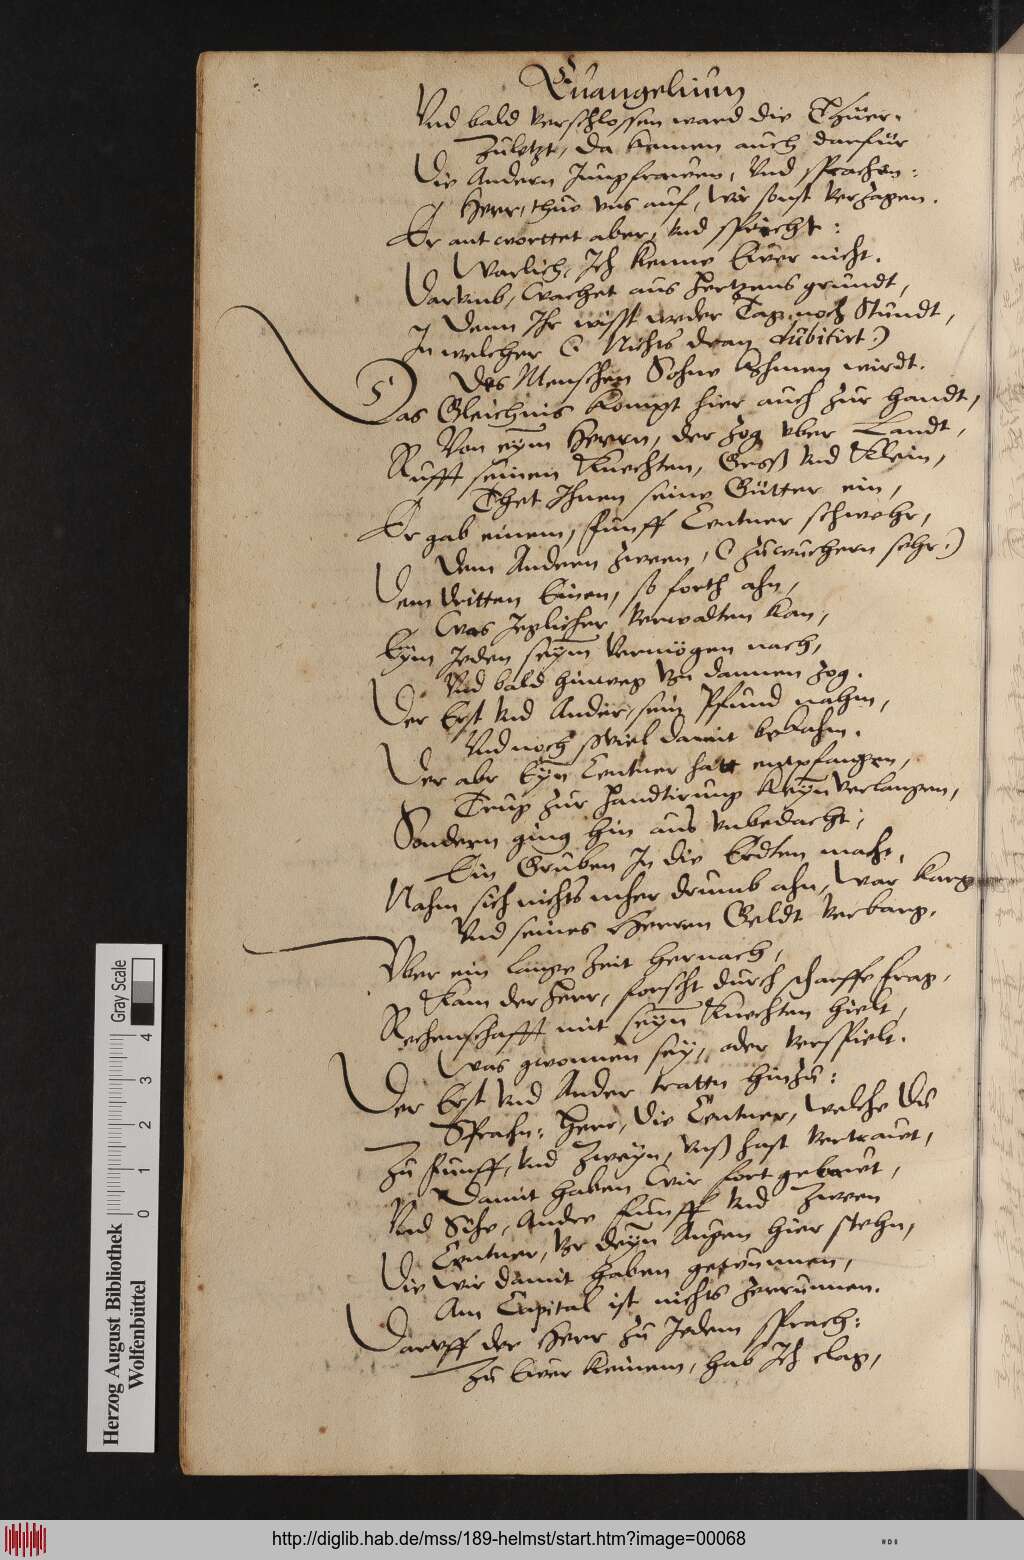 Euangelium
Vnd bald verschlossen ward die Thüer.
Zuletzt, da kamen auch darfür
Die Andern Jungfrawen, Vnd sprachen:
Herr, thue vns auf, Wir sonst verzagen.
Er antworttet aber, vnd spricht:
Warlich, Ich kenne Euer nicht.
Darumb, Wachet aus Hertzens grundt,
Denn Ihr wisst weder Tag noch Stundt,
In welcher (Nichts dran dubitirt)
Des Menschen Sohne kohmen wirdt.
5 Das Gleichnis kompt hier auch zur handt,
Von eym Herrn, der zog vber Landt,
Rufft seinen Knechten, Gross vnd Klein,
Thet Ihnen seine Gütter ein,
Er gab einem, funff Centner schwehr,
Dem Andern zween, (zuwuchern sehr)
Dem dritten Einen, so forth ahn,
Was Jeglicher verwalten kan,
Eym Jeden seym vermögen nach,
Vnd bald hinweg von dannen zog.
Der Erst vnd Ander, sein Pfund nahm,
Vnd noch soviel damit bekahm.
Der abr Eyn Centner hatt empfangen,
Trug zur Handtirung keyn verlangen,
Sondern ging hin aus vnbedacht,
Ein Gruben In die Erdten macht,
Nahm sich nichts mher drumb ahn, War karg
Vnd seines Herren Geldt verbarg.
Vber ein lange Zeit hernach,
Kam der Herr, forscht durch scharffe frag,
Rechenschafft mit seyn Knechten hielt,
Was gwonnen sey, oder verspielt.
Der Erst vnd Ander trattn hinzu:
Sprachn: Herr, die Centner, welche Du
Zu funff, vnd Zweyn, vnss hast vertrauet,
Damit haben Wir fort gebauet,
Vnd Sihe, Andre funff vnd Zween
Centner, vor deyn Augen hier stehn,
Die Wir damit haben gewunnen,
Am Capital ist nichts zerrunnen.
Darauff der Herr zu Jedem sprach:
Zu Euer keinem, hab Ich clag,
Herzog August Bibliothek
Wolfenbüttel
0 1 2 3 4
Gray Scale
http://diglib.hab.de/mss/189-helmst/start.htm?image=00068